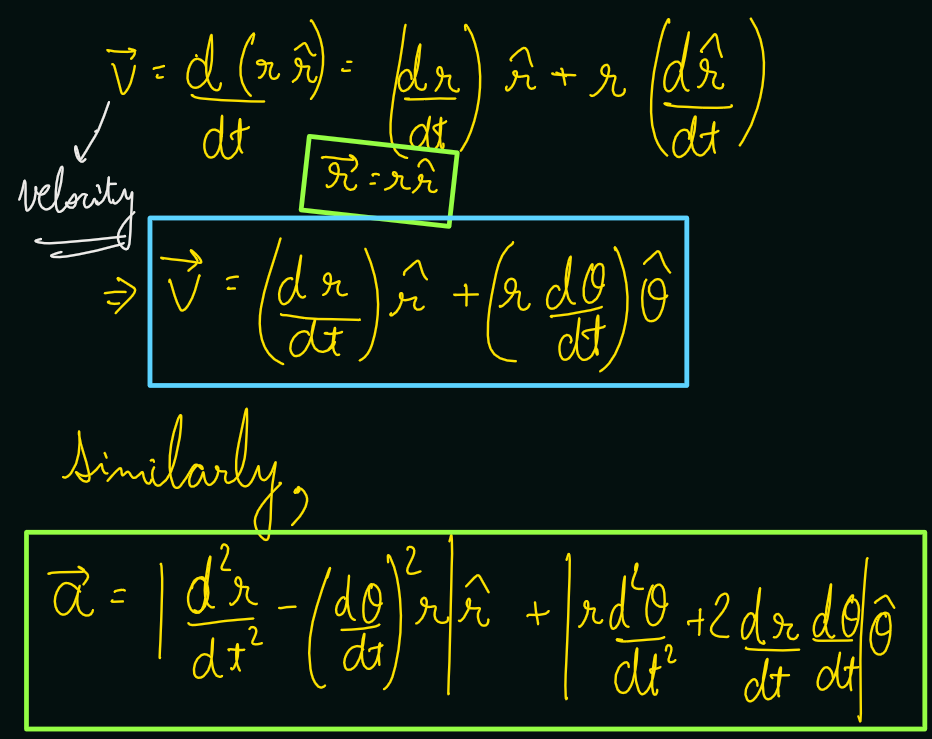 $\vec{v} = \frac{d}{dt}(r\hat{r}) = \left(\frac{dr}{dt}\right)\hat{r} + r\left(\frac{d\hat{r}}{dt}\right)$
velocity
$\vec{r} = r\hat{r}$
$\Rightarrow \vec{v} = \left(\frac{dr}{dt}\right)\hat{r} + \left(r\frac{d\theta}{dt}\right)\hat{\theta}$
Similarly,
$\vec{a} = \left|\frac{d^2r}{dt^2} - \left(\frac{d\theta}{dt}\right)^2 r\right|\hat{r} + \left|r\frac{d^2\theta}{dt^2} + 2\frac{dr}{dt}\frac{d\theta}{dt}\right|\hat{\theta}$